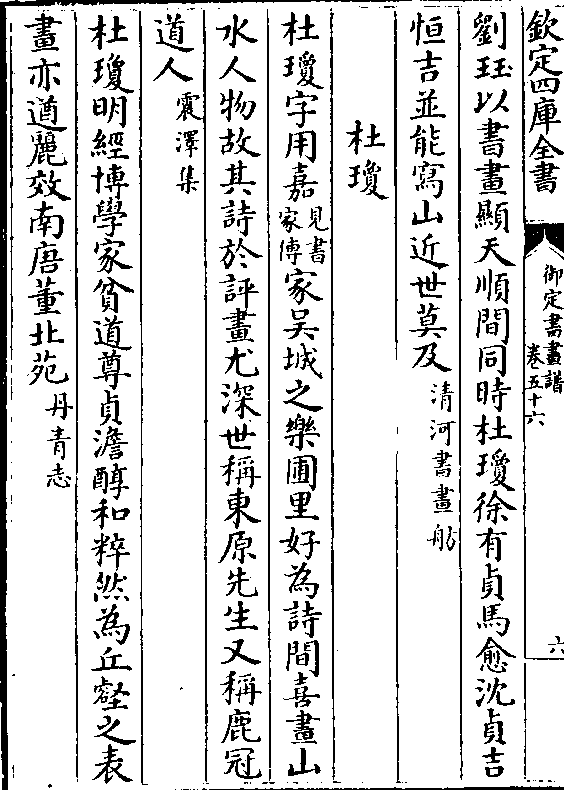 欽定四庫全書
御定書畫譜
卷五十六
六
劉珏以書畫顯天順間同時杜瓊徐有貞馬愈沈貞吉
恒吉並能寫山近世莫及清河書畫舫
杜瓊
杜瓊字用嘉見書家傳家吳城之樂圃里好為詩間喜畫山
水人物故其詩於評畫尤深世稱東原先生又稱鹿冠
道人震澤集
杜瓊明經博學家貧道尊貞澹醇和粹然為丘壑之表
畫亦遒麗效南唐董北苑丹青志